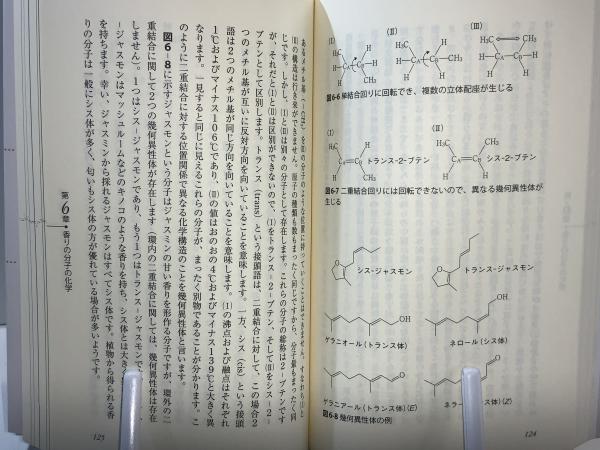 (I)
(II)
(III)
図6-6 単結合回りに回転でき、複数の立体配座が生じる
(I)
(II)
トランス-2-ブテン
シス-2-ブテン
図6-7 二重結合回りには回転できないので、異なる幾何異性体が
生じる
シス-ジャスモン
トランス-ジャスモン
ゲラニオール(トランス体)
ネロール(シス体)
ゲラニアール(トランス体)(E)
図6-8 幾何異性体の例
124
じです。しかし、(I)と(II)は別々の分子として存在します。これらの分子の総称は2-ブテンです
が、それだと(I)と(II)は区別ができないので、(I)をトランス-2-ブテン、そして(II)をシス-2-
ブテンとして区別します。トランス(trans)という接頭語は、二重結合に対して、この場合2
つのメチル基が互いに反対方向を向いていることを意味します。一方、シス(cis)という接頭
語は2つのメチル基が同じ方向を向いていることを意味します。(I)の沸点および融点はそれぞれ
1℃およびマイナス106℃であり、(II)の値はおのおの4℃およびマイナス139℃と大きく異
なります。一見すると同じに見えるこれらの分子が、まったく別物であることが分かります。こ
のように二重結合に対する位置関係で異なる化学構造のことを幾何異性体と言います。
図6-8に示すジャスモンという分子はジャスミンの甘い香りを形作る分子ですが、環外の二
重結合に関して2つの幾何異性体が存在します(環内の二重結合に関しては、幾何異性体は存在
しません)。1つはシス-ジャスモンであり、もう1つはトランス-ジャスモンで
-ジャスモンはマッシュルームなどのキノコのような香りを持ち、シス体とは大き
を持ちます。幸い、ジャスミンから採れるジャスモンはすべてシス体です。植物から得られる香
りの分子は一般にシス体が多く、匂いもシス体の方が優れている場合が多いようです。
第6章・香りの分子の化学
125